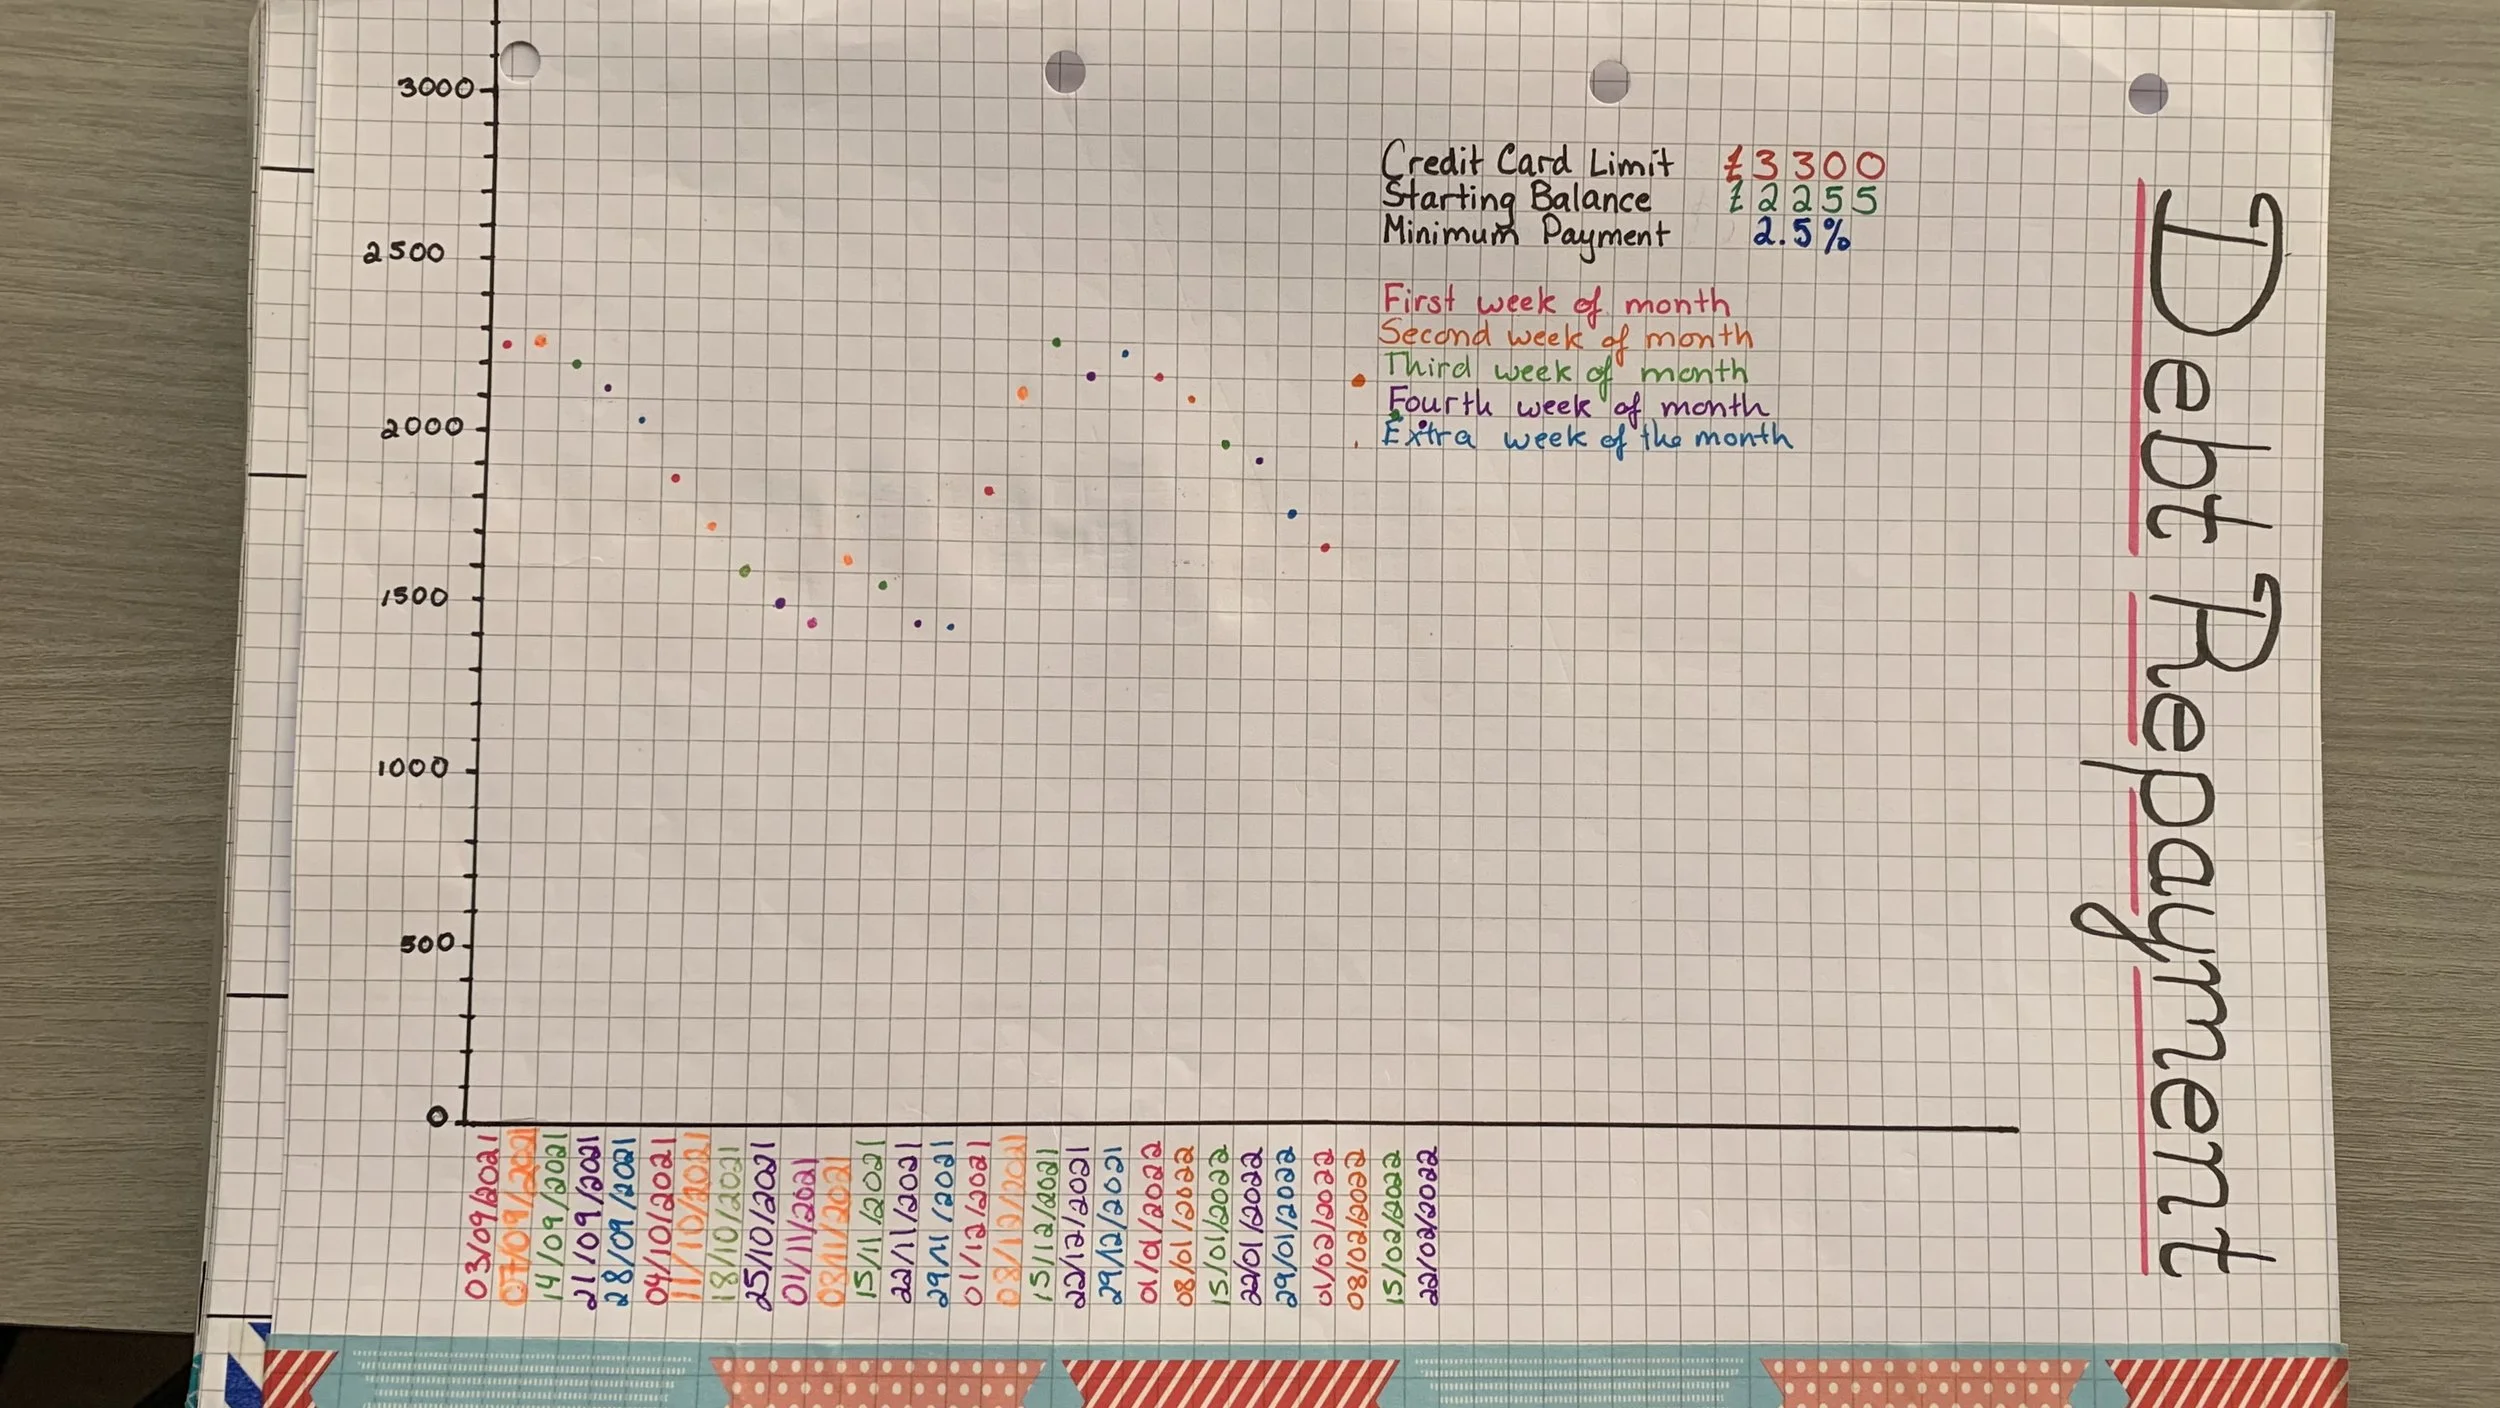 3000
2500
2000
1500
1000
500
0
Credit Card Limit £3300
Starting Balance £2255
Minimum Payment 2.5%
First week of month
Second week of month
Third week of month
Fourth week of month
Extra week of the month
Debt Repayment
03/09/2021
07/09/2021
14/09/2021
21/09/2021
28/09/2021
04/10/2021
11/10/2021
18/10/2021
25/10/2021
01/11/2021
08/11/2021
15/11/2021
22/11/2021
29/11/2021
01/12/2021
08/12/2021
15/12/2021
22/12/2021
29/12/2021
01/01/2022
08/01/2022
15/01/2022
22/01/2022
29/01/2022
01/02/2022
08/02/2022
15/02/2022
22/02/2022